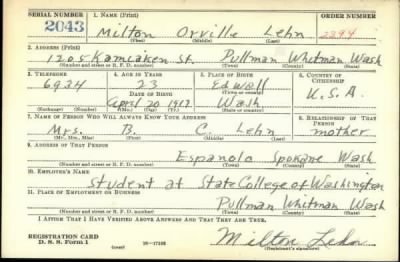 SERIAL NUMBER 1. NAME (Print) ORDER NUMBER
2043 Milton Orville Lehn 2394
(First) (Middle) (Last)
2. ADDRESS (Print)
1205 Kamiaken St. Pullman Whitman Wash
(Number and street or R. F. D. number) (Town) (County) (State)
3. TELEPHONE 4. AGE IN YEARS 5. PLACE OF BIRTH 6. COUNTRY OF CITIZENSHIP
6924 23 Edwall U.S.A.
DATE OF BIRTH (Town or county)
April 20 1917 Wash
(Exchange) (Number) (Mo.) (Day) (Yr.) (State or country)
7. NAME OF PERSON WHO WILL ALWAYS KNOW YOUR ADDRESS 8. RELATIONSHIP OF THAT PERSON
Mrs. B. C. Lehn mother
(Mr., Mrs., Miss) (First) (Middle) (Last)
9. ADDRESS OF THAT PERSON
Espanola Spokane Wash
(Number and street or R. F. D. number) (Town) (County) (State)
10. EMPLOYER'S NAME
Student at State College of Washington
11. PLACE OF EMPLOYMENT OR BUSINESS
Pullman Whitman Wash
(Number and street or R. F. D. number) (Town) (County) (State)
I AFFIRM THAT I HAVE VERIFIED ABOVE ANSWERS AND THAT THEY ARE TRUE.
REGISTRATION CARD
D. S. S. Form 1 (over) Milton Lehn
(Registrant's signature)